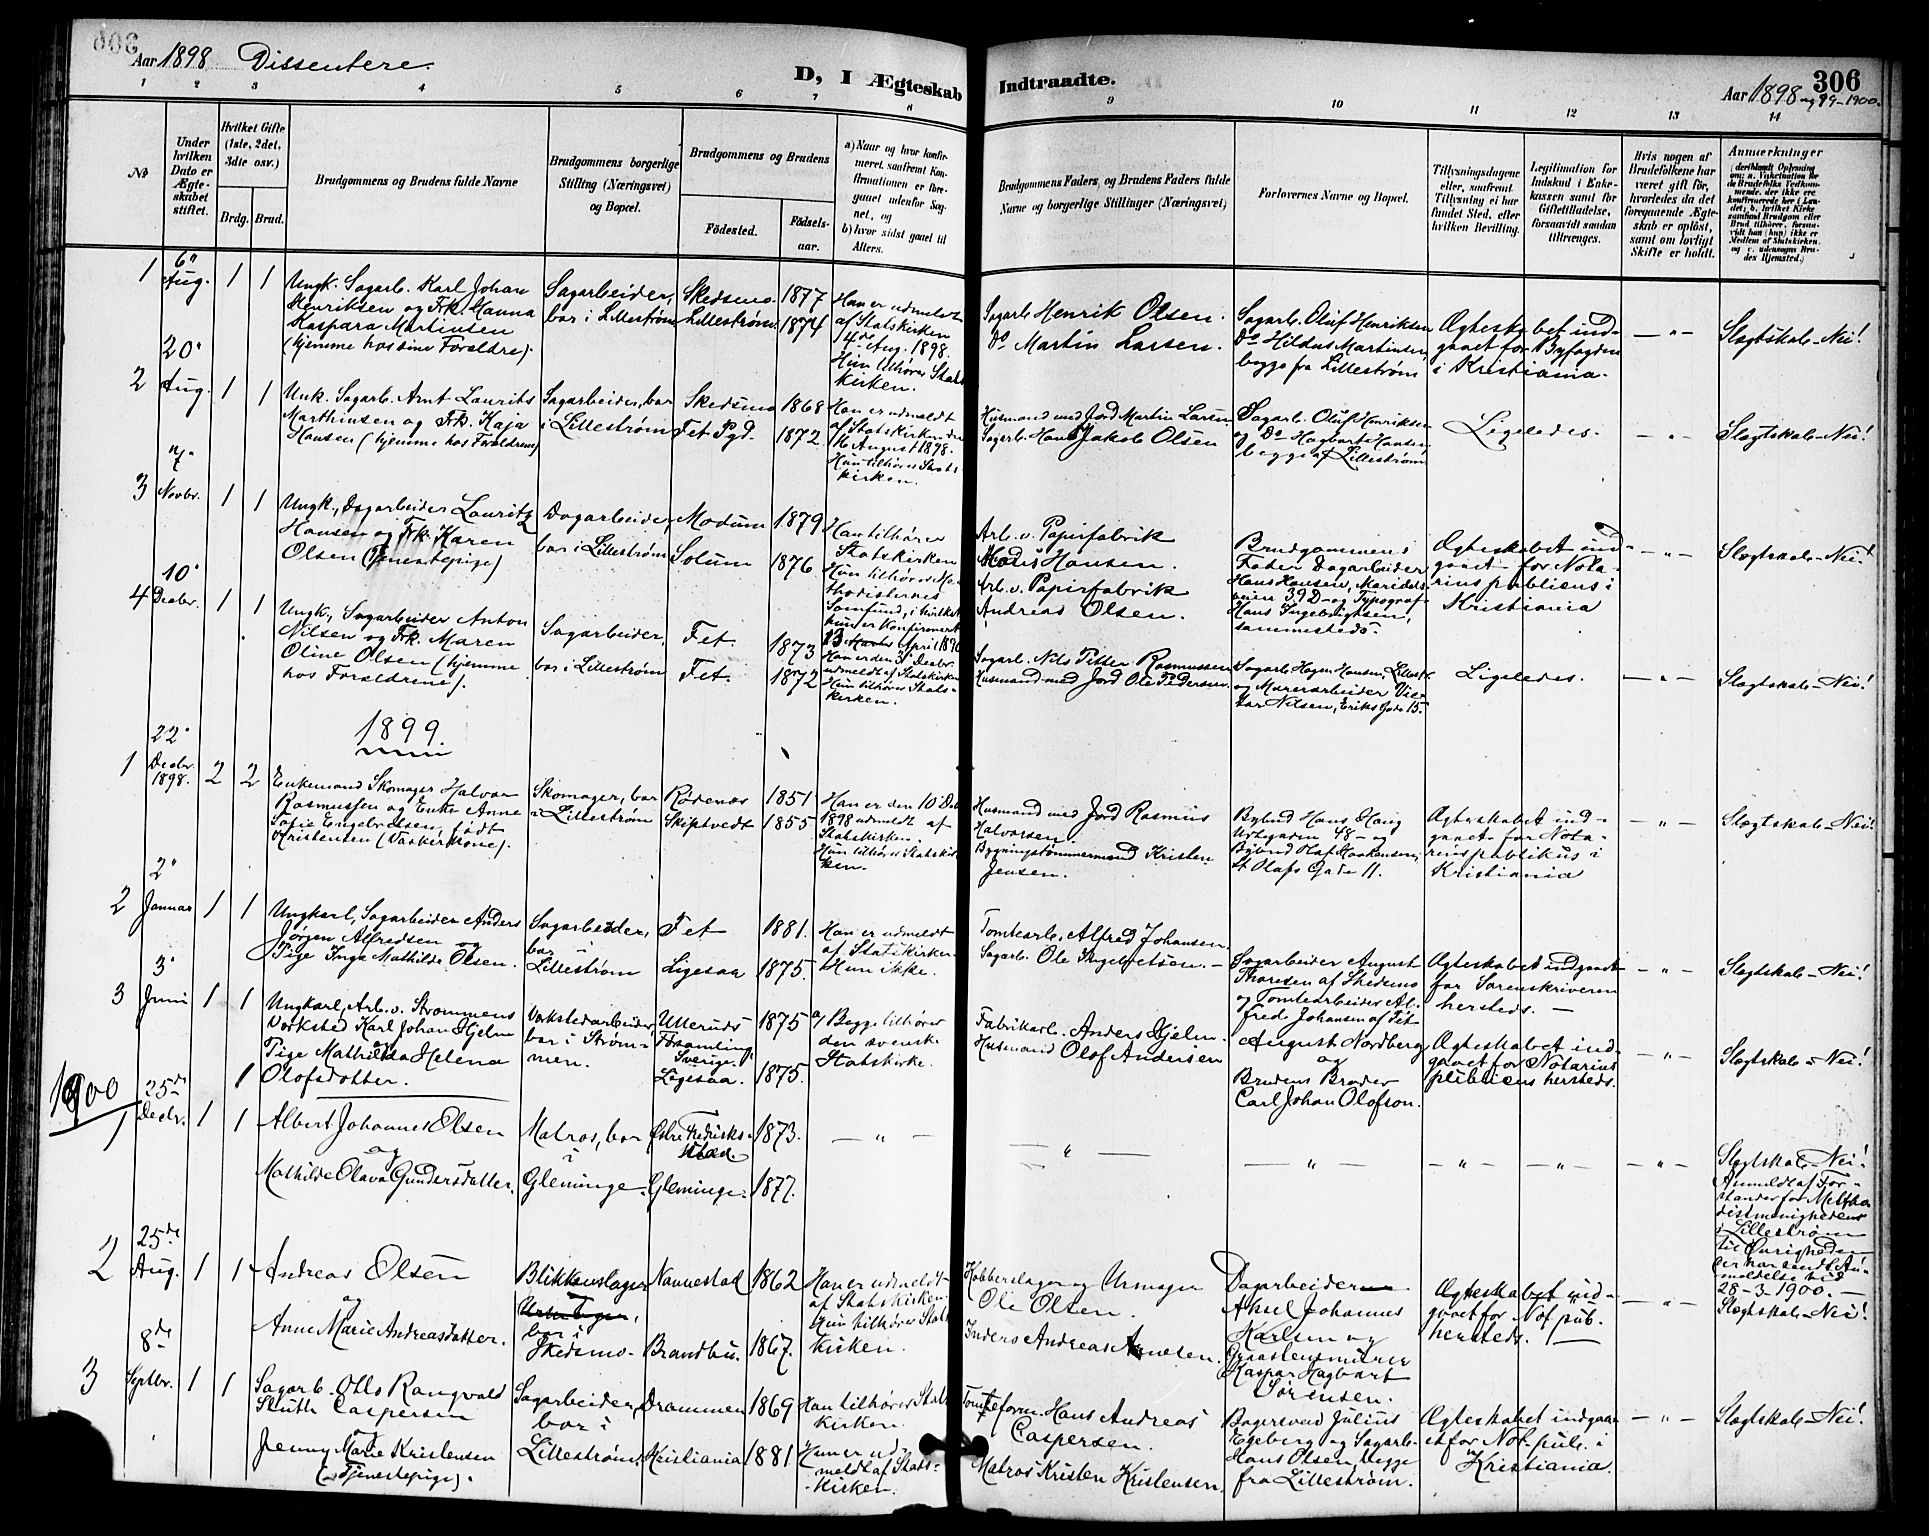 306
Aar 1898 Dissentere.
D, I Ægteskab
Indtraadte.
Aar 1898 og 99-1900.
306
1 2 3 4 5 6 7 8 9 10 11 12 13 14
No
Under hvilken Dato er Ægteskabet stiftet.
Hvilket Gifte (1ste, 2det, 3die osv.)
Brdg. Brud.
Brudgommens og Brudens fulde Navne
Brudgommens borgerlige Stilling (Næringsvei) og Bopæl.
Brudgommens og Brudens
Fødested.
Fødselsaar.
a) Naar og hvor konfirmeret, saafremt Konfirmationen er foregaaet udenfor Sognet, og
b) hvor sidst gaaet til Alters.
Brudgommens Faders og Brudens Faders fulde Navne og borgerlige Stillinger (Næringsvei)
Forlovernes Navne og Bopæl.
Tillysningsdagene eller, saafremt Tillysning ei har fundet Sted, efter hvilken Bevilling.
Legitimation for Indskud i Enkekassen samt for Giftetilladelse, forsaavidt saadan tiltrænges.
Hvis nogen af Brudefolkene har været gift før, hvorledes da det foregaaende Ægteskab er opløst, samt om lovligt Skifte er holdt.
Anmærkninger
1
6'
Aug.
1 1
Ungk. Sagarb. Karl Johan
Henriksen og Frk. Hanna
Kaspara Martinsen
(hjemme hos sine Foreldre).
Sagarbeider,
bor i Lillestrøm
Skedsmo 1877
Lillestrøm 1874
Han er udmeldt
af Statskirken
4de Aug. 1898.
Hun tilhører Stats
kirken.
Sagarb. Henrik Olsen.
Do Martin Larsen.
Sagarb. Oluf Henriksen
Do Hildus Martinsen,
begge fra Lillestrøm
Ægteskabet ind-
gaaet for Byfogden
i Kristiania.
— " —
Slægtskab - Nei!
2
20'
Aug.
1 1
Unk. Sagarb. Arnt Laurits
Marthinsen og Frk. Kaja
Hansen (hjemme hos Foreldrene)
Sagarbeider, bor
i Lillestrøm
Skedsmo 1868
Fet Pgd. 1872
Han er udmeldt
af Statskirken den
16 August 1898.
Hun tilhører Stats
kirken.
Husmand med Jord Martin Larsen
Sagarb. Hans Jakob Olsen
Sagarb. Oluf Henriksen
og Do Hagbart Hansen,
begge af Lillestrøm
Ligeledes.
— " —
Slægtskab - Nei!
3
7'
Novbr.
1 1
Ungk., Dagarbeider Lauritz
Hansen og Frk. Karen
Olsen (Tjenestepige)
Dagarbeider,
bor i Lillestrøm
Modum 1879
Solum 1876
Han tilhører
Statskirken
Hun tilhører Me-
thodisternes
Samfund, i hvilket
hun er konfirmert
13 April 1890
Arb. v. Papirfabrik
Mads Hansen.
Arb. v. Papirfabrik
Andreas Olsen.
Brudgommens
Fader Dagarbeider
Hans Hansen, Maridals
veien 39 D - og Typograf
Hans Ingebrigtsen,
sammesteds.
Ægteskabet ind-
gaaet for Nota-
rius publicus i
Kristiania
— " —
Slægtskab - Nei!
4
10'
Decbr.
1 1
Ungk., Sagarbeider Anton
Nilsen og Frk. Maren
Oline Olsen (hjemme
hos Foreldrene).
Sagarbeider,
bor i Lillestrøm
Fet. 1873
Fet. 1872
Han er den 3' Decbr.
udmeldt af Statskirken
Hun tilhører Stats-
kirken.
Sagarb. Nils Petter Rasmussen
Husmand med Jord Ole Pedersen.
Sagarb. Hagen Hansen, Lillestr.
og Murerarbeider Vic-
tor Nilsen, Eriks Gade 15.
Ligeledes.
— " —
Slægtskab - Nei!
1899.
1
22'
Decbr.
1898.
2 2
Enkemand Skomager Halvor
Rasmussen og Enke Anne
Sofie Engebretsen, født
Kristensen (Vaskerkone).
Skomager, bor
i Lillestrøm
Rødenes 1851
Skiptvedt 1855
Han er den 10' Dec.
1898 udmeldt af
Statskirken.
Hun tilhører Statskir-
ken.
Husmand med Jord Rasmus
Halvorsen.
Bygningstømmermand Kristen
Jensen.
Bybud Hans Haug
Urtegaden 48 - og
Bybud Olaf Haakonsen,
St. Olafs Gade 11.
Ægteskabet ind-
gaaet for Nota-
rius publikus i
Kristiania
— " —
Slægtskab - Nei!
2
2'
Januar
1 1
Ungkarl, Sagarbeider Anders
Jørgen Alfredsen
og
Pige Inga Mathilde Olsen.
Sagarbeider,
bor i
Lillestrøm
Fet 1881.
Ligesaa 1875.
Han er udmeldt
af Statskirken
Hun ikke.
Tomtearb. Alfred Johansen.
Sagarb. Ole Ingebretsen. —
Sagarbeider August
Thoresen af Skedsmo
og Tomtearbeider Al-
fred Johansen af Fet
Ægteskabet indgaaet
for Sorenskriveren
hersteds. —
— " —
Slægtskab - Nei!
3
3'
Juni
1 1
Ungkarl, Arb. v. Strømmens
Værksted Karl Johan Hjelm
og
Pige Mathilda Helena
Olofsdotter.
Værkstedarbeider,
bor i Strøm-
men.
Ulleruds
Forsamling
Sverige. 1875
Ligesaa. 1875.
a) Begge tilhører
den svenske
Statskirke.
Fabrikarb. Anders Hjelm.
Husmand Olof Andersen
August Nordberg
og
Brudens Broder
Carl Johan Olofson.
Ægteskabet ind-
gaaet for Notarius
publicus hersteds.
— " —
Slægtskab - Nei!
1900
1
25de
Decbr.
1 1
Albert Johannes Olsen
og
Mathilde Olava Gundersdatter.
Matros, bor
i
Glemminge.
Østre Fredriks-
stad. 1873.
Glemminge. 1877.
— " —
Slægtskab - Nei!
Anmeldt af For-
stander for Metho-
distmenigheden
i Lillestrøm
til Øvrigheden
der har sendt An-
meldelse hid
28-3-1900. —
2
25de
Aug.
1 1
Andreas Olsen
og
Anne Marie Andreasdatter.
Blikkenslager
bor i
Skedsmo.
Nannestad 1862
Brandbu. 1867.
Han er udmeldt
af Statskirken.
Hun tilhører Stats
kirken.
Kobberslager og Urmager
Ole Olsen.
Inders Andreas Arnesen.
Dagarbeider
Aksel Johannes
Karlsen og
Graastensmurer
Kaspar Hagbart
Sørensen.
Ægteskabet ind-
gaaet for Not. pub.
hersteds.
— " —
Slægtskab - Nei!
3
8de
Septbr.
1 1
Sagarb. Otto Rangvald
Skuth Caspersen
og
Jenny Marie Kristensen
(Tjenestepige).
Sagarbeider,
bor i
Lillestrøm.
Drammen 1869
Kristiania 1881
Han tilhører Stats
kirken.
Hun er ud-
meldt af Stats-
kirken.
Tomteform. Hans Andreas
Caspersen.
Matros Kristen Kristensen.
Bagersvend Julius
Egeberg og Sagarb.
Hans Olsen, begge
fra Lillestrøm.
Ægteskabet indgaa-
et for Not. pub. i
Kristiania.
— " —
Slægtskab - Nei!